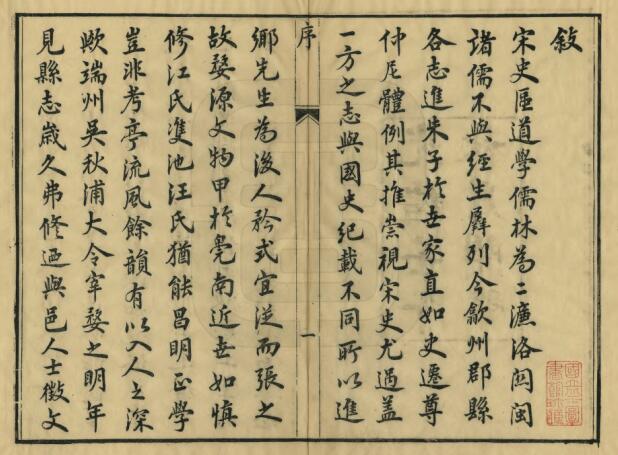 敘
宋史區道學儒林為二濂洛関閩
諸儒不與經生羣列今歙州郡縣
各志進朱子於世家直如史遷尊
仲尼體例其推崇視宋史尤過蓋
一方之志與國史紀載不同所以進
序
一
鄉先生為後人矜式宜從而張之
故婺源文物甲於皖南近世如慎
修江氏雙池汪氏猶能昌明正學
豈非考亭流風餘韻有以入人之深
歟端州吳秋浦大令宰婺之明年
見縣志歲久弗修迺與邑人士徵文